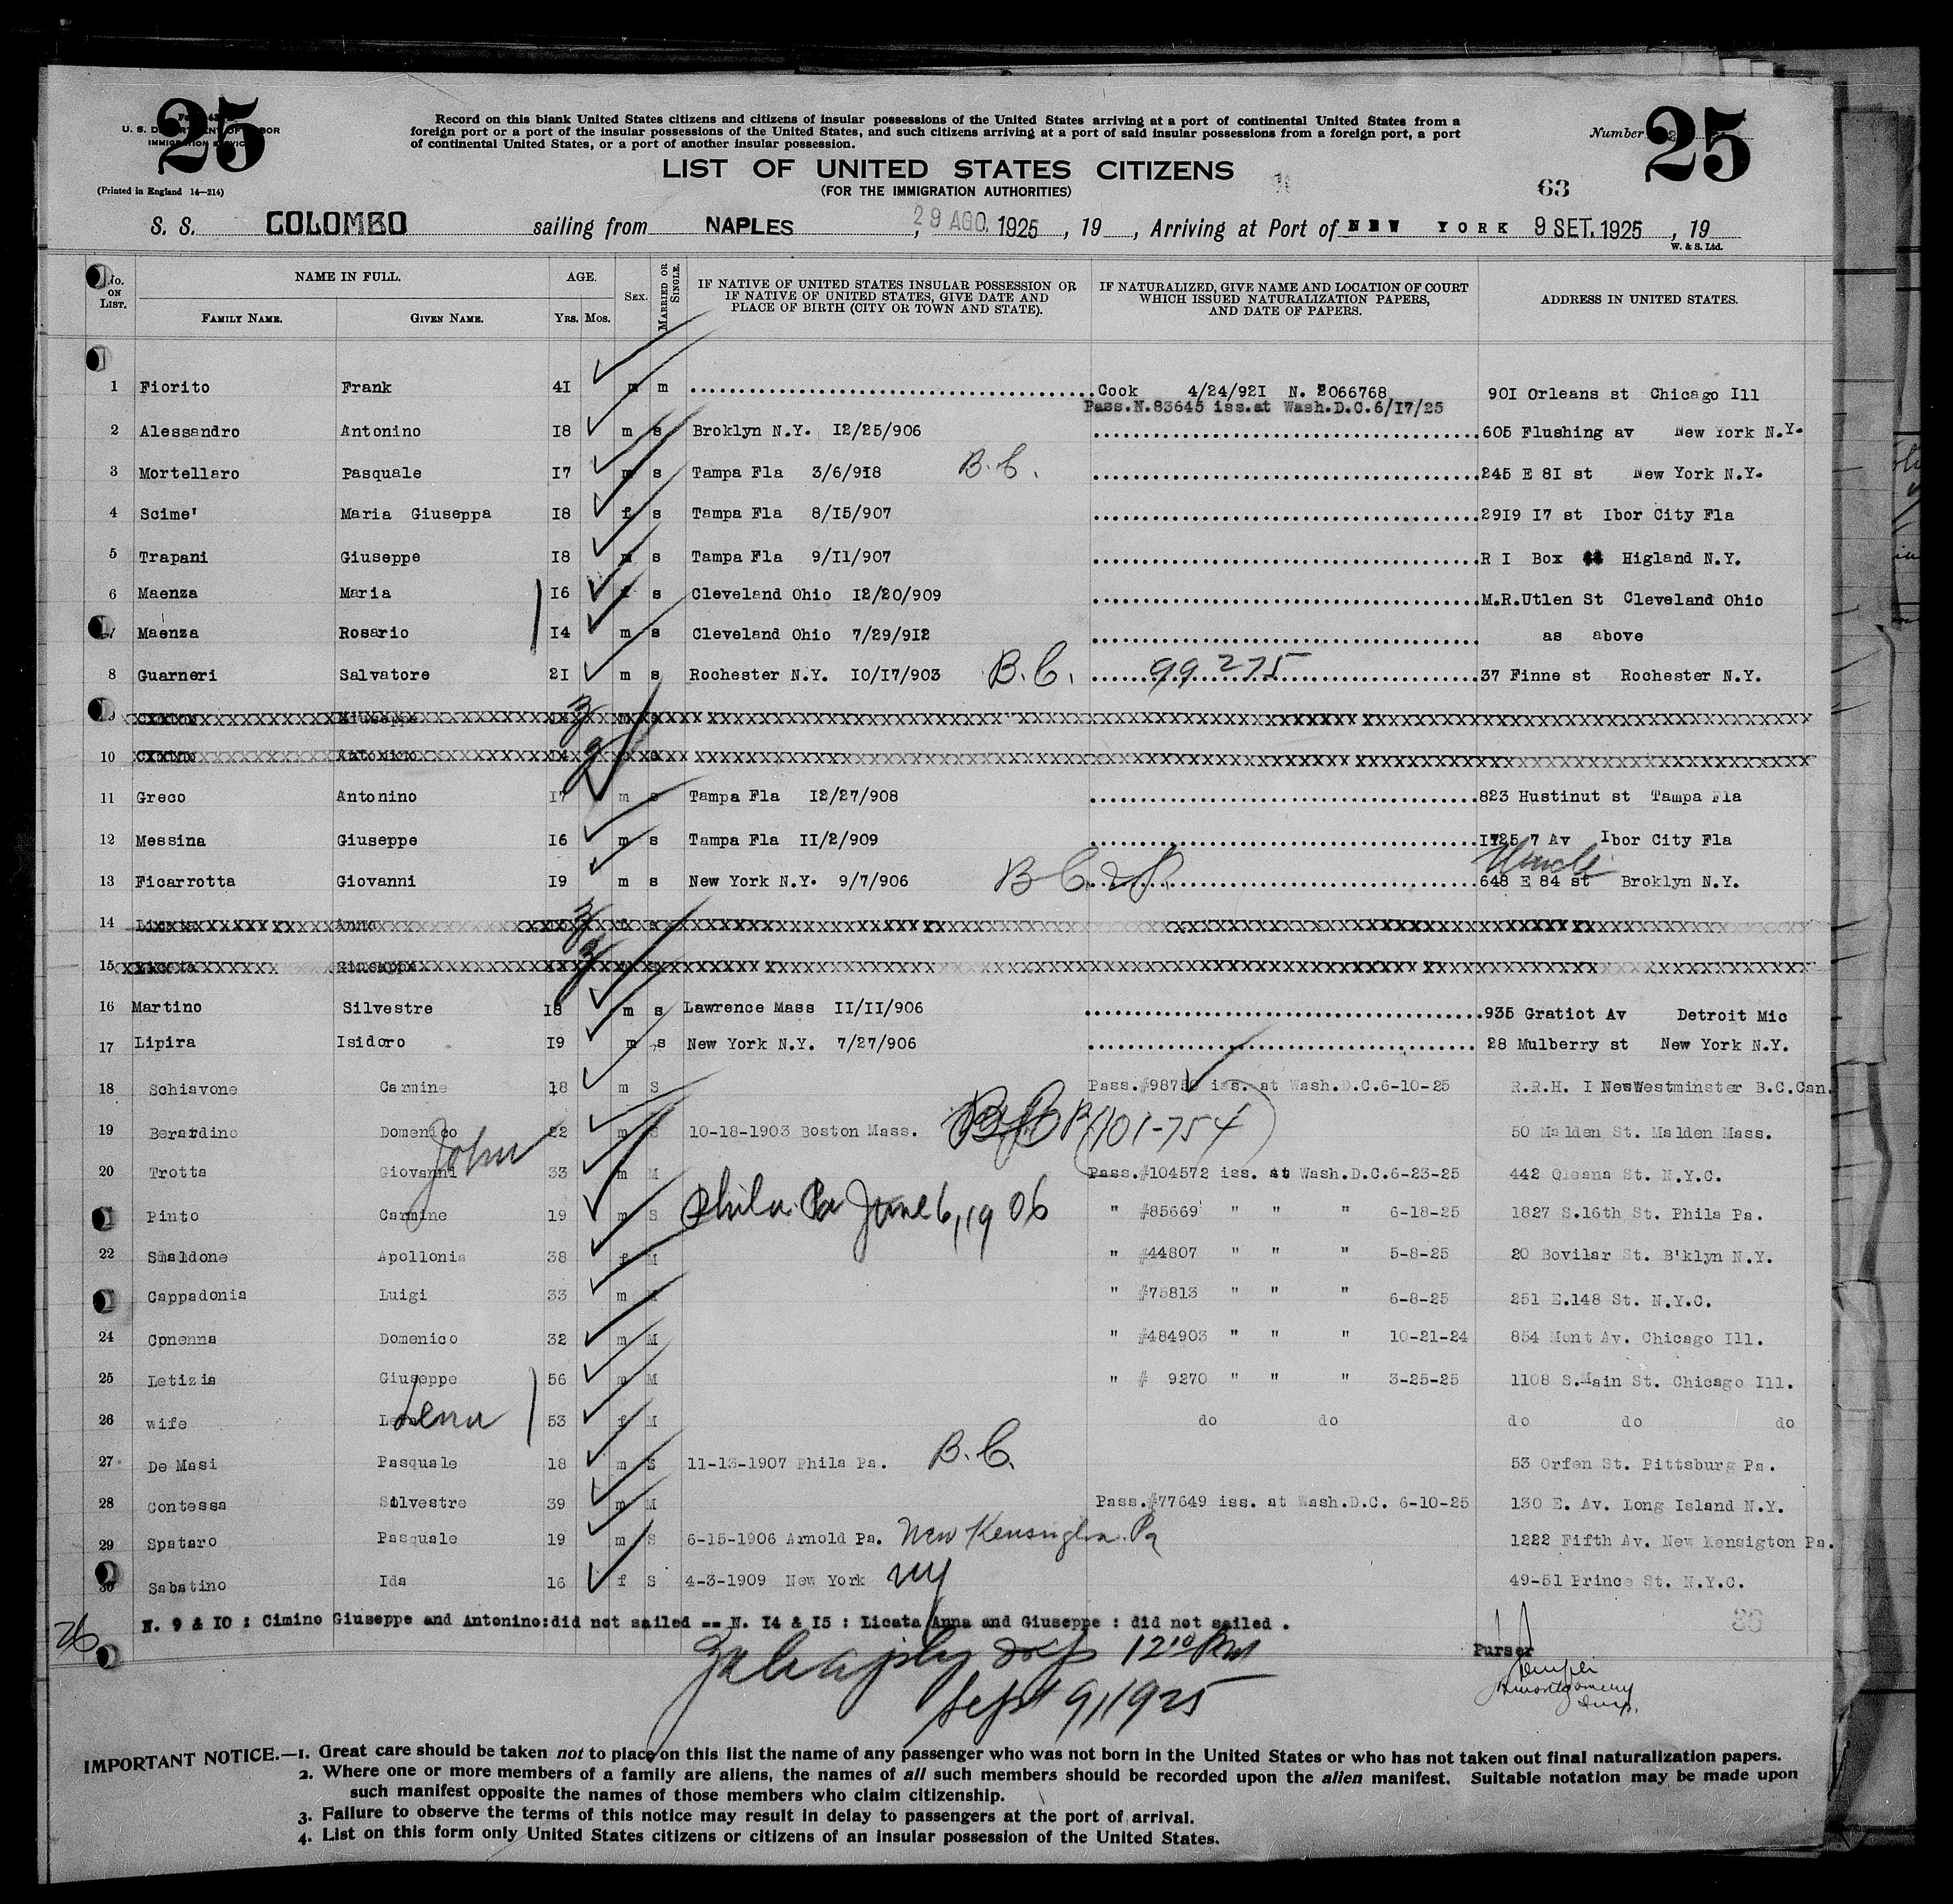 25
U. S. DEPARTMENT OF LABOR
IMMIGRATION SERVICE
(Printed in England 14—214)
Record on this blank United States citizens and citizens of insular possessions of the United States arriving at a port of continental United States from a
foreign port or a port of the insular possessions of the United States, and such citizens arriving at a port of said insular possessions from a foreign port, a port
of continental United States, or a port of another insular possession.
Number
25
LIST OF UNITED STATES CITIZENS
(FOR THE IMMIGRATION AUTHORITIES)
63
S. S. COLOMBO sailing from NAPLES , 29 AGO. 1925 , 19 , Arriving at Port of NEW YORK 9 SET. 1925 , 19
W. & S. Ltd.
No. ON LIST. NAME IN FULL. FAMILY NAME. GIVEN NAME. AGE. YRS. MOS. SEX. MARRIED OR SINGLE. IF NATIVE OF UNITED STATES INSULAR POSSESSION OR IF NATIVE OF UNITED STATES, GIVE DATE AND PLACE OF BIRTH (CITY OR TOWN AND STATE). IF NATURALIZED, GIVE NAME AND LOCATION OF COURT WHICH ISSUED NATURALIZATION PAPERS, AND DATE OF PAPERS. ADDRESS IN UNITED STATES.
1 Fiorito Frank 4I m m Cook 4/24/92I N. 2066768 90I Orleans st Chicago Ill
Pass.N.83645 iss.at Wash.D.C.6/17/25
2 Alessandro Antonino I8 m s Broklyn N.Y. I2/25/906 605 Flushing av New York N.Y.
3 Mortellaro Pasquale I7 m s Tampa Fla 3/6/9I8 B.C. 245 E 8I st New York N.Y.
4 Scime' Maria Giuseppa I8 f s Tampa Fla 8/I5/907 29I9 I7 st Ibor City Fla
5 Trapani Giuseppe I8 m s Tampa Fla 9/II/907 R I Box Higland N.Y.
6 Maenza Maria I6 f s Cleveland Ohio I2/20/909 M.R.Utlen St Cleveland Ohio
7 Maenza Rosario I4 m s Cleveland Ohio 7/29/9I2 as above
8 Guarneri Salvatore 2I m s Rochester N.Y. I0/I7/903 B.C. 99275 37 Finne st Rochester N.Y.
9 Cimino Giuseppe
10 Cimino Antonino I4
11 Greco Antonino I7 m s Tampa Fla I2/27/908 823 Hustinut st Tampa Fla
12 Messina Giuseppe I6 m s Tampa Fla II/2/909 I725 7 Av Ibor City Fla
Uncle
13 Ficarrotta Giovanni I9 m s New York N.Y. 9/7/906 B C 648 E 84 st Broklyn N.Y.
14 Licata Anna
15 Licata Giuseppe
16 Martino Silvestre I8 m s Lawrence Mass II/II/906 935 Gratiot Av Detroit Mic
17 Lipira Isidoro I9 m s New York N.Y. 7/27/906 28 Mulberry st New York N.Y.
18 Schiavone Carmine 18 m S Pass. iss. at Wash.D.C.6-10-25 R.R.H. I NewWestminster B.C.Can.
19 Berardino Domenico 22 m S 10-18-1903 Boston Mass. 101-754 50 Malden St. Malden Mass.
John
20 Trotta Giovanni 33 m M Pass.#104572 iss. at Wash.D.C.6-23-25 442 Oleans St. N.Y.C.
Pinto Carmine 19 m S Phila. Pa June 6, 1906 " #85669 " " " 6-18-25 1827 S.16th St. Phila Pa.
22 Smaldone Apollonia 38 f M " #44807 " " " 5-8-25 20 Bovilar St. B'klyn N.Y.
Cappadonia Luigi 33 m M " #75813 " " " 6-8-25 251 E.148 St. N.Y.C.
24 Cpnenna Domenico 32 m M " #484903 " " " 10-21-24 854 Mont Av. Chicago Ill.
25 Letizia Giuseppe 56 m M " # 9270 " " " 3-25-25 1108 S.Main St. Chicago Ill.
26 wife Lena 53 f M do do do do do
27 De Masi Pasquale 18 m S 11-13-1907 Phila Pa. B.C. 53 Orfen St. Pittsburg Pa.
28 Contessa Silvestre 39 m M Pass.#77649 iss. at Wash.D.C. 6-10-25 130 E. Av. Long Island N.Y.
29 Spataro Pasquale 19 m S 6-15-1906 Arnold Pa. New Kensington Pa 1222 Fifth Av. New Kensigton Pa.
30 Sabatino Ida 16 f S 4-3-1909 New York NY 49-51 Prince St. N.Y.C.
26 N. 9 & I0 : Cimino Giuseppe and Antonino:did not sailed -- N. I4 & I5 : Licata Anna and Giuseppe : did not sailed .
Purser
12 10 PM
Sept 9, 1925
Montgomery
Insp.
IMPORTANT NOTICE.—1. Great care should be taken not to place on this list the name of any passenger who was not born in the United States or who has not taken out final naturalization papers.
2. Where one or more members of a family are aliens, the names of all such members should be recorded upon the alien manifest. Suitable notation may be made upon
such manifest opposite the names of those members who claim citizenship.
3. Failure to observe the terms of this notice may result in delay to passengers at the port of arrival.
4. List on this form only United States citizens or citizens of an insular possession of the United States.